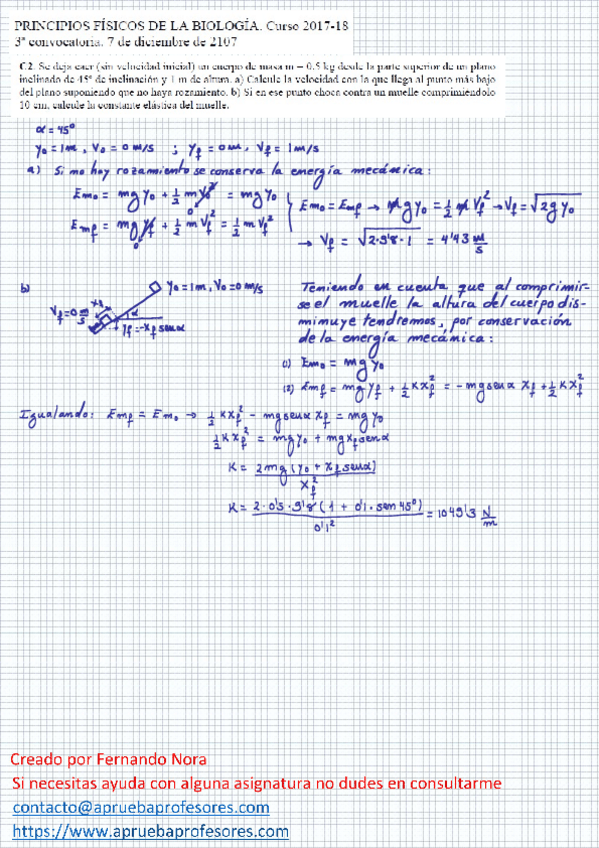 PRINCIPIOS FÍSICOS DE LA BIOLOGÍA. Curso 2017-18
3ª convocatoria. 7 de diciembre de 2107
C2. Se deja caer (sin velocidad inicial) un cuerpo de masa m = 0.5 kg desde la parte superior de un plano
inclinado de 45º de inclinación y 1 m de altura. a) Calcule la velocidad con la que llega al punto más bajo
del plano suponiendo que no haya rozamiento. b) Si en ese punto choca contra un muelle comprimiéndolo
10 cm, calcule la constante elástica del muelle.
α = 45º
y₀ = 1m, V₀ = 0 m/s ; y_f = 0m, V_f = 1 m/s
a) Si no hay rozamiento se conserva la energía mecánica:
Em₀ = mg y₀ + ½ m V₀² = mg y₀
Em_f = mg y_f + ½ m V_f² = ½ m V_f²
Em₀ = Em_f → m g y₀ = ½ m V_f² → V_f = √(2 g y₀)
→ V_f = √(2·9'8·1) = 4'43 m/s
b)
y₀ = 1m, V₀ = 0 m/s
V_f = 0 m/s
x_f
α
y_f = -x_f senα
Teniendo en cuenta que al comprimir-
se el muelle la altura del cuerpo dis-
minuye tendremos, por conservación
de la energía mecánica:
(1) Em₀ = mg y₀
(2) Em_f = mg y_f + ½ K x_f² = - mg senα x_f + ½ K x_f²
Igualando: Em_f = Em₀ → ½ K x_f² - mg senα x_f = mg y₀
½ K x_f² = mg y₀ + mg x_f senα
K = 2mg (y₀ + x_f senα) / x_f²
K = 2·0'5·9'8 (1 + 0'1·sen 45º) / 0'1² = 1049'3 N/m
Creado por Fernando Nora
Si necesitas ayuda con alguna asignatura no dudes en consultarme
contacto@apruebaprofesores.com
https://www.apruebaprofesores.com